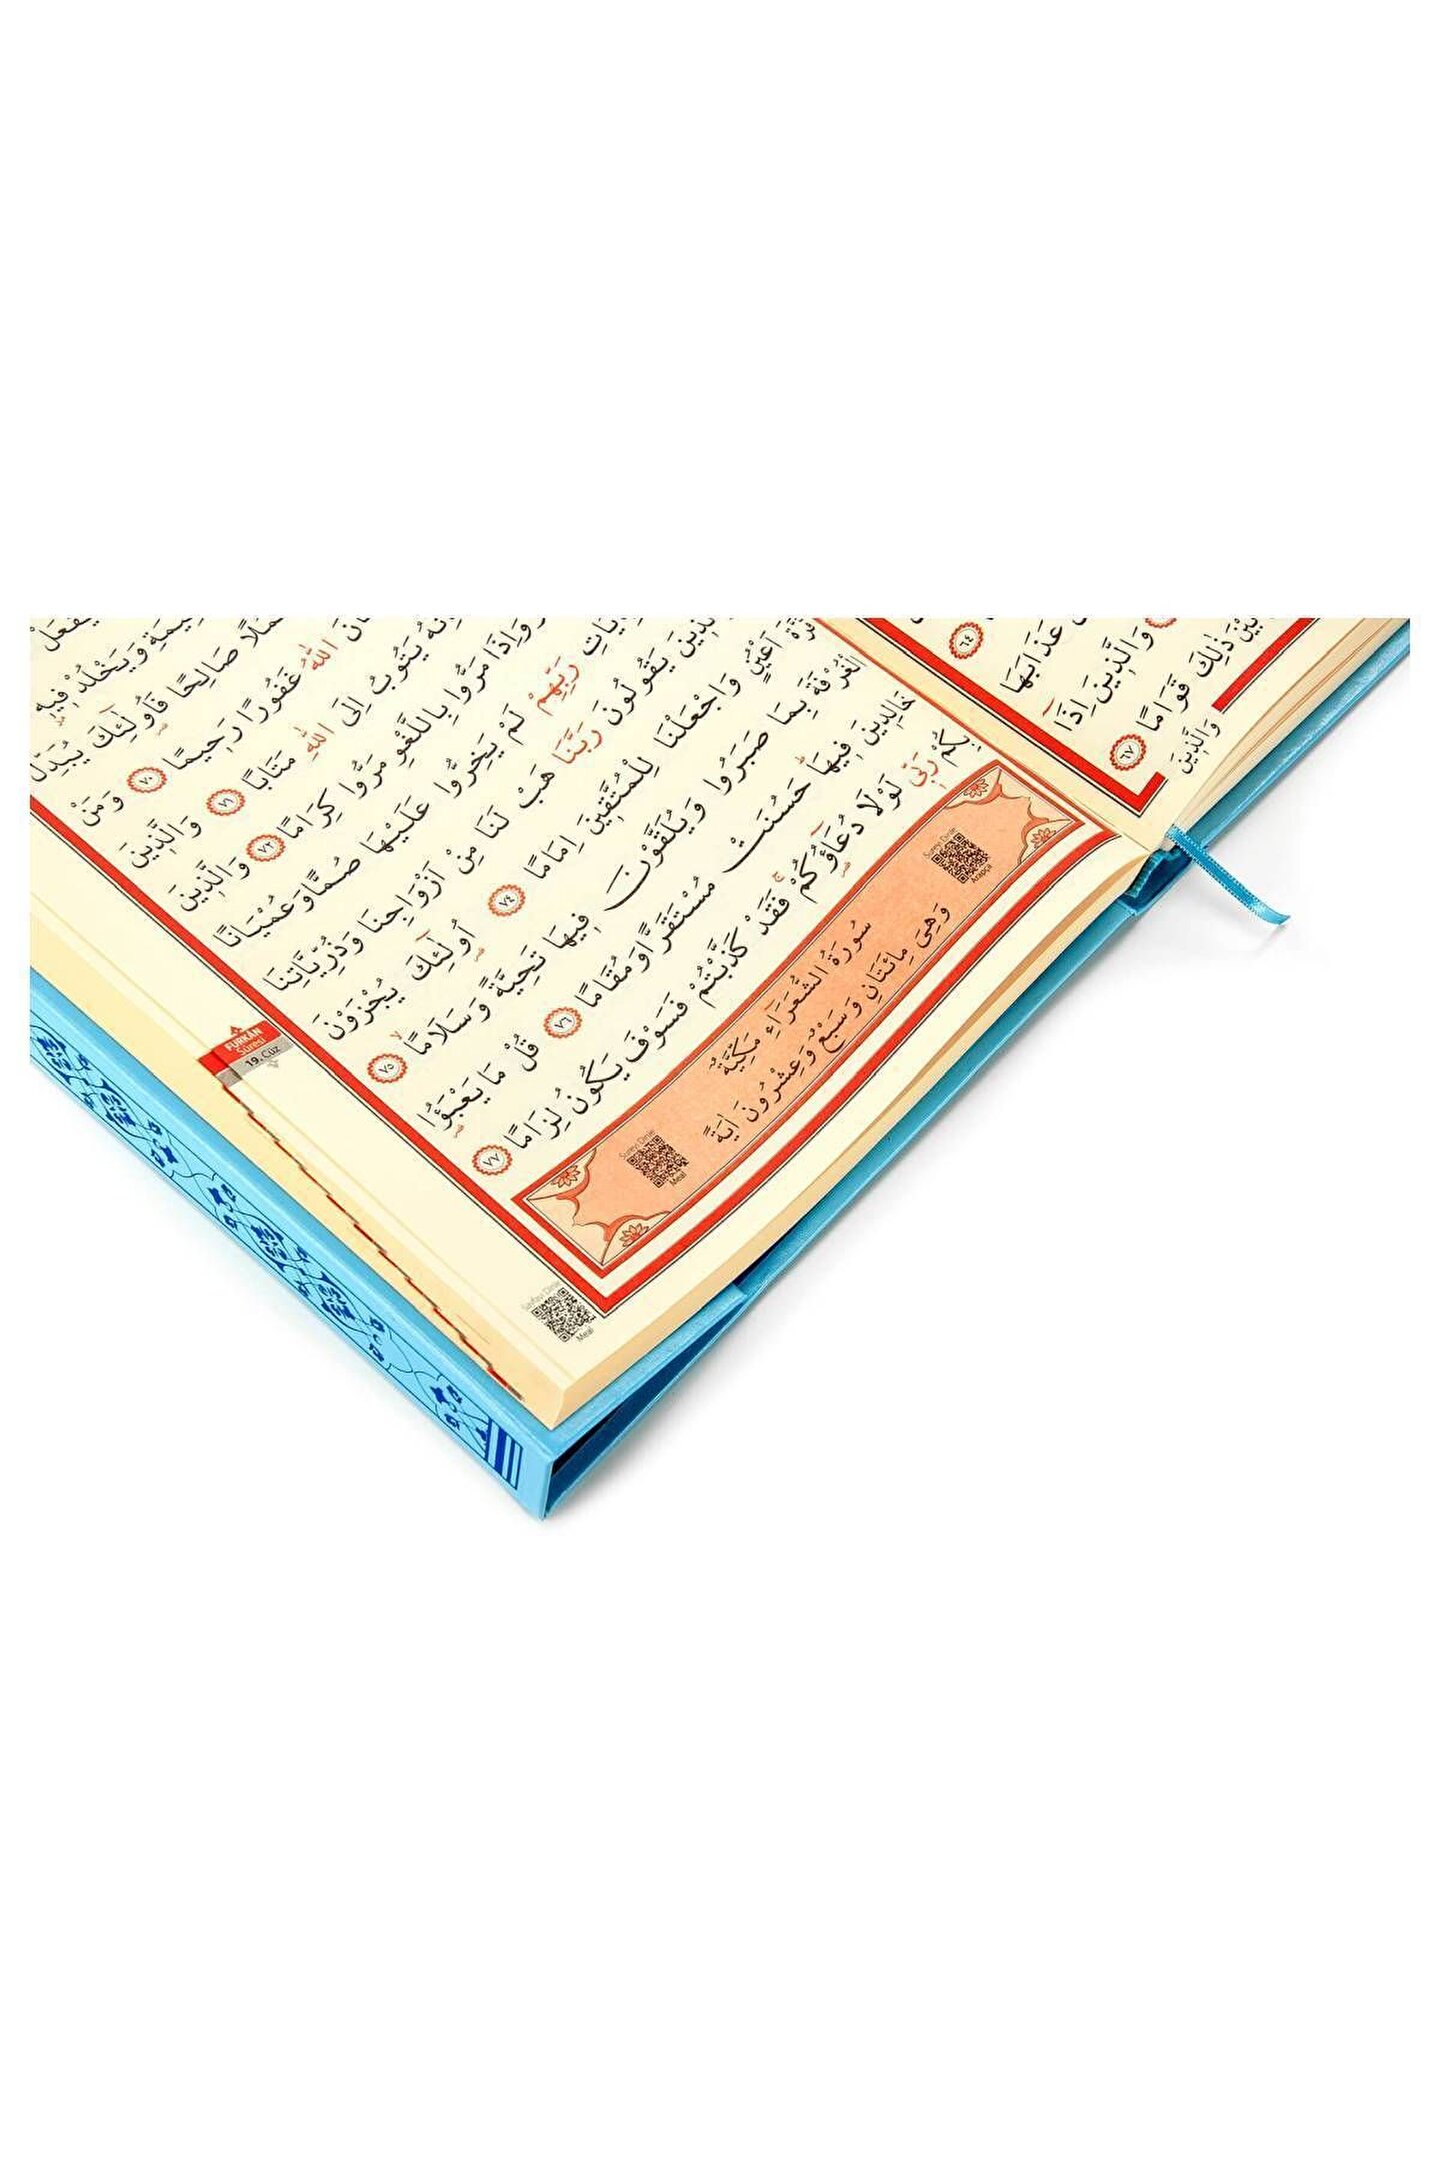 ٦٤
عَذَابَهَا
وَالَّذِينَ اِذَا
ذٰلِكَ قَوَامًا ٦٧
وَالَّذِينَ
يَفْعَلْ
وَيَخْلُدْ فِيهِ
صَالِحًا فَاُولٰٓئِكَ يُبَدِّلُ
اللّٰهُ غَفُورًا رَحِيمًا ٧٠ وَمَنْ
يَتُوبُ اِلَى اللّٰهِ مَتَابًا ٧١ وَالَّذِينَ
وَاِذَا مَرُّوا بِاللَّغْوِ مَرُّوا كِرَامًا ٧٢ وَالَّذِينَ
رَبِّهِمْ لَمْ يَخِرُّوا عَلَيْهَا صُمًّا وَعُمْيَانًا
يَقُولُونَ رَبَّنَا هَبْ لَنَا مِنْ اَزْوَاجِنَا وَذُرِّيَّاتِنَا
اَعْيُنٍ وَاجْعَلْنَا لِلْمُتَّقِينَ اِمَامًا ٧٤ اُولٰٓئِكَ يُجْزَوْنَ
الْغُرْفَةَ بِمَا صَبَرُوا وَيُلَقَّوْنَ فِيهَا تَحِيَّةً وَسَلَامًا ٧٥
خَالِدِينَ فِيهَا حَسُنَتْ مُسْتَقَرًّا وَمُقَامًا ٧٦ قُلْ مَا يَعْبَؤُا
بِكُمْ رَبّ۪ي لَوْلَا دُعَآؤُكُمْ فَقَدْ كَذَّبْتُمْ فَسَوْفَ يَكُونُ لِزَامًا ٧٧
سُورَةُ الشُّعَرَاءِ مَكِّيَّةٌ
وَهِيَ مِائَتَانِ وَسَبْعٌ وَعِشْرُونَ اٰيَةً
Sureyi Dinle
Arapça
Sureyi Dinle
Meal
FURKÂN
Sûresi
19. Cüz
Sayfayı Dinle
Meal